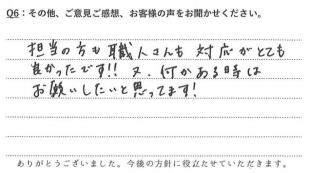 Q6：その他、ご意見ご感想、お客様の声をお聞かせください。
担当の方も職人さんも対応がとても
良かったです!! 又、何かある時は
お願いしたいと思ってます!
ありがとうございました。今後の方針に役立たせていただきます。